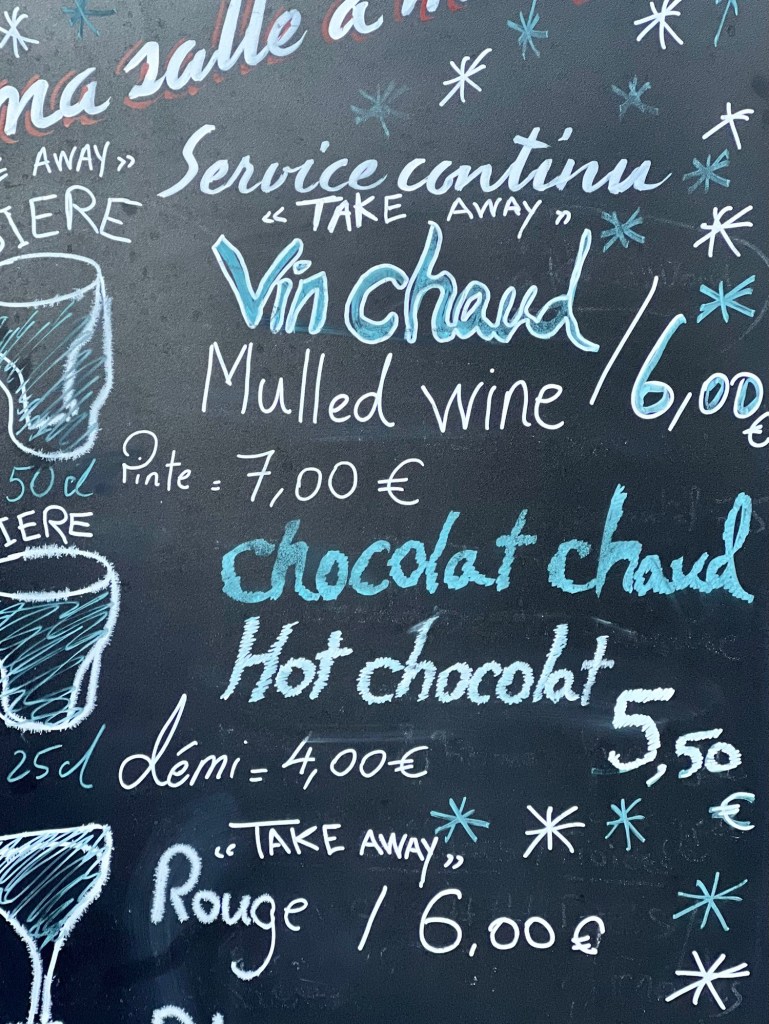 ma salle à m
AWAY»
Service continu
« TAKE AWAY »
BIERE
Vin chaud
Mulled wine / 6,00 €
50 cl Pinte = 7,00 €
BIERE
chocolat chaud
Hot chocolat
5,50 €
25cl démi = 4,00€
« TAKE AWAY »
Rouge / 6,00€